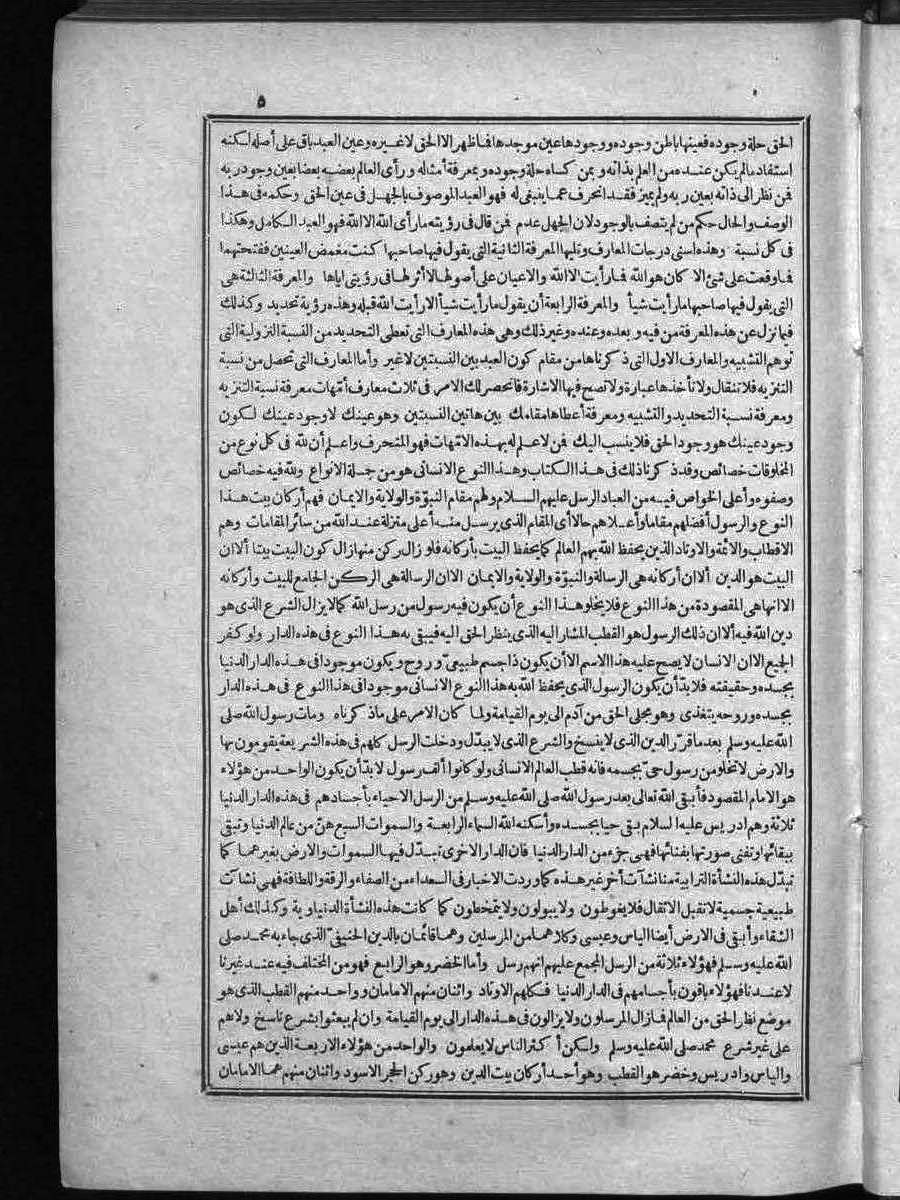 ٥
الحق حلة وجوده فعينها باطن وجوده ووجودها عين موجدها فما ظهر الا الحق لا غيره وعين العبد باق على أصله لكنه
استفاد ما لم يكن عنده من العلم بذاته وبمن كساه حلة وجوده وبمعرفة أمثاله ورأى العالم بعضه بعضا بعين وجود ربه
فمن نظر الى ذاته بعين ربه ولم يميز فقد انحرف عما ينبغي له فهو العبد الموصوف بالجهل في عين الحق وحكمه في هذا
الوصف والحال حكم من لم يتصف بالوجود لان الجهل عدم فمن قال في رؤيته ما رأى الله الا الله فهو العبد الكامل وهكذا
في كل نسبة وهذه اسنى درجات المعارف وتليها المعرفة الثانية التي يقول فيها صاحبها كنت مغمض العينين ففتحتهما
فما وقعت على شئ الا كان هو الله فما رأيت الا الله والاعيان على أصولها لا أثر لها في رؤيتي اياها والمعرفة الثالثة هي
التي يقول فيها صاحبها ما رأيت شيأ والمعرفة الرابعة أن يقول ما رأيت شيأ الا رأيت الله قبله وهذه رؤية تحديد وكذلك
فيما نزل عن هذه المعرفة من فيه وبعده وعنده وغير ذلك وهي هذه المعارف التي تعطى التحديد من النسبة النزولية التي
توهم التشبيه والمعارف الاول التي ذكرناها من مقام كون العبد بين النسبتين لا غير وأما المعارف التي تحصل من نسبة
التنزيه فلا تنقال ولا تأخذها عبارة ولا تصح فيها الاشارة فانحصر لك الامر في ثلاث معارف أمّهات معرفة نسبة التنزيه
ومعرفة نسبة التحديد والتشبيه ومعرفة أعطاها مقامك بين هاتين النسبتين وهو عينك لا وجود عينك لكون
وجود عينك هو وجود الحق فلا ينسب اليك فمن لا علم له بهذه الامّهات فهو المنحرف واعلم أن لله في كل نوع من
المخلوقات خصائص وقد ذكرنا ذلك في هذا الكتاب وهذا النوع الانساني هو من جملة الانواع ولله فيه خصائص
وصفوه وأعلى الخواص فيه من العباد الرسل عليهم السلام ولهم مقام النبوّة والولاية والايمان فهم أركان بيت هذا
النوع والرسول أفضلهم مقاما وأعلاهم حالا أي المقام الذي يرسل منه أعلى منزلة عند الله من سائر المقامات وهم
الاقطاب والائمة والاوتاد الذين يحفظ الله بهم العالم كما يحفظ البيت بأركانه فلو زال ركن منها زال كون البيت بيتا ألا ان
البيت هو الدين ألا ان أركانه هي الرسالة والنبوّة والولاية والايمان الا ان الرسالة هي الركن الجامع للبيت وأركانه
الا انها هي المقصودة من هذا النوع فلا يخلو هذا النوع أن يكون فيه رسول من رسل الله كما لا يزال الشرع الذي هو
دين الله فيه ألا ان ذلك الرسول هو القطب المشار اليه الذي ينظر الحق اليه فيبقى به هذا النوع في هذه الدار ولو كفر
الجميع الا ان الانسان لا يصح عليه هذا الاسم الا أن يكون ذا جسم طبيعيّ وروح ويكون موجودا في هذه الدار الدنيا
بجسده وحقيقته فلا بدّ أن يكون الرسول الذي يحفظ الله به هذا النوع الانساني موجودا في هذا النوع في هذه الدار
بجسده وروحه يتغذى وهو مجلى الحق من آدم الى يوم القيامة ولما كان الامر على ما ذكرناه ومات رسول الله صلى
الله عليه وسلم بعد ما قرّر الدين الذي لا ينسخ والشرع الذي لا يبدّل ودخلت الرسل كلهم في هذه الشريعة يقومون بها
والارض لا تخلو من رسول حيّ بجسمه فانه قطب العالم الانساني ولو كانوا ألف رسول لا بدّ أن يكون الواحد من هؤلاء
هو الامام المقصود فأبقى الله تعالى بعد رسول الله صلى الله عليه وسلم من الرسل الاحياء بأجسادهم في هذه الدار الدنيا
ثلاثة وهم ادريس عليه السلام بقى حيا بجسده وأسكنه الله السماء الرابعة والسموات السبع هنّ من عالم الدنيا وتبقى
ببقائها وتفنى صورتها بفنائها فهي جزء من الدار الدنيا فان الدار الاخرى تبدّل فيها السموات والارض بغيرهما كما
تبدّل هذه النشأة الترابية منا نشآت أخر غير هذه كما وردت الاخبار في السعداء من الصفاء والرقة واللطافة فهي نشآت
طبيعية جسمية لا تقبل الاثقال فلا يغوطون ولا يبولون ولا يتمخطون كما كانت هذه النشأة الدنياوية وكذلك أهل
الشقاء وأبقى في الارض أيضا الياس وعيسى وكلاهما من المرسلين وهما قائمان بالدين الحنيفيّ الذي جاء به محمد صلى
الله عليه وسلم فهؤلاء ثلاثة من الرسل المجمع عليهم انهم رسل وأما الخضر وهو الرابع فهو من المختلف فيه عند غيرنا
لا عندنا فهؤلاء باقون بأجسامهم في الدار الدنيا فكلهم الاوتاد واثنان منهم الامامان وواحد منهم القطب الذي هو
موضع نظر الحق من العالم فما زال المرسلون ولا يزالون في هذه الدار الى يوم القيامة وان لم يبعثوا بشرع ناسخ ولا هم
على غير شرع محمد صلى الله عليه وسلم ولكن أكثر الناس لا يعلمون والواحد من هؤلاء الاربعة الذين هم عيسى
والياس وادريس وخضر هو القطب وهو أحد أركان بيت الدين وهو ركن الحجر الاسود واثنان منهم هما الامامان